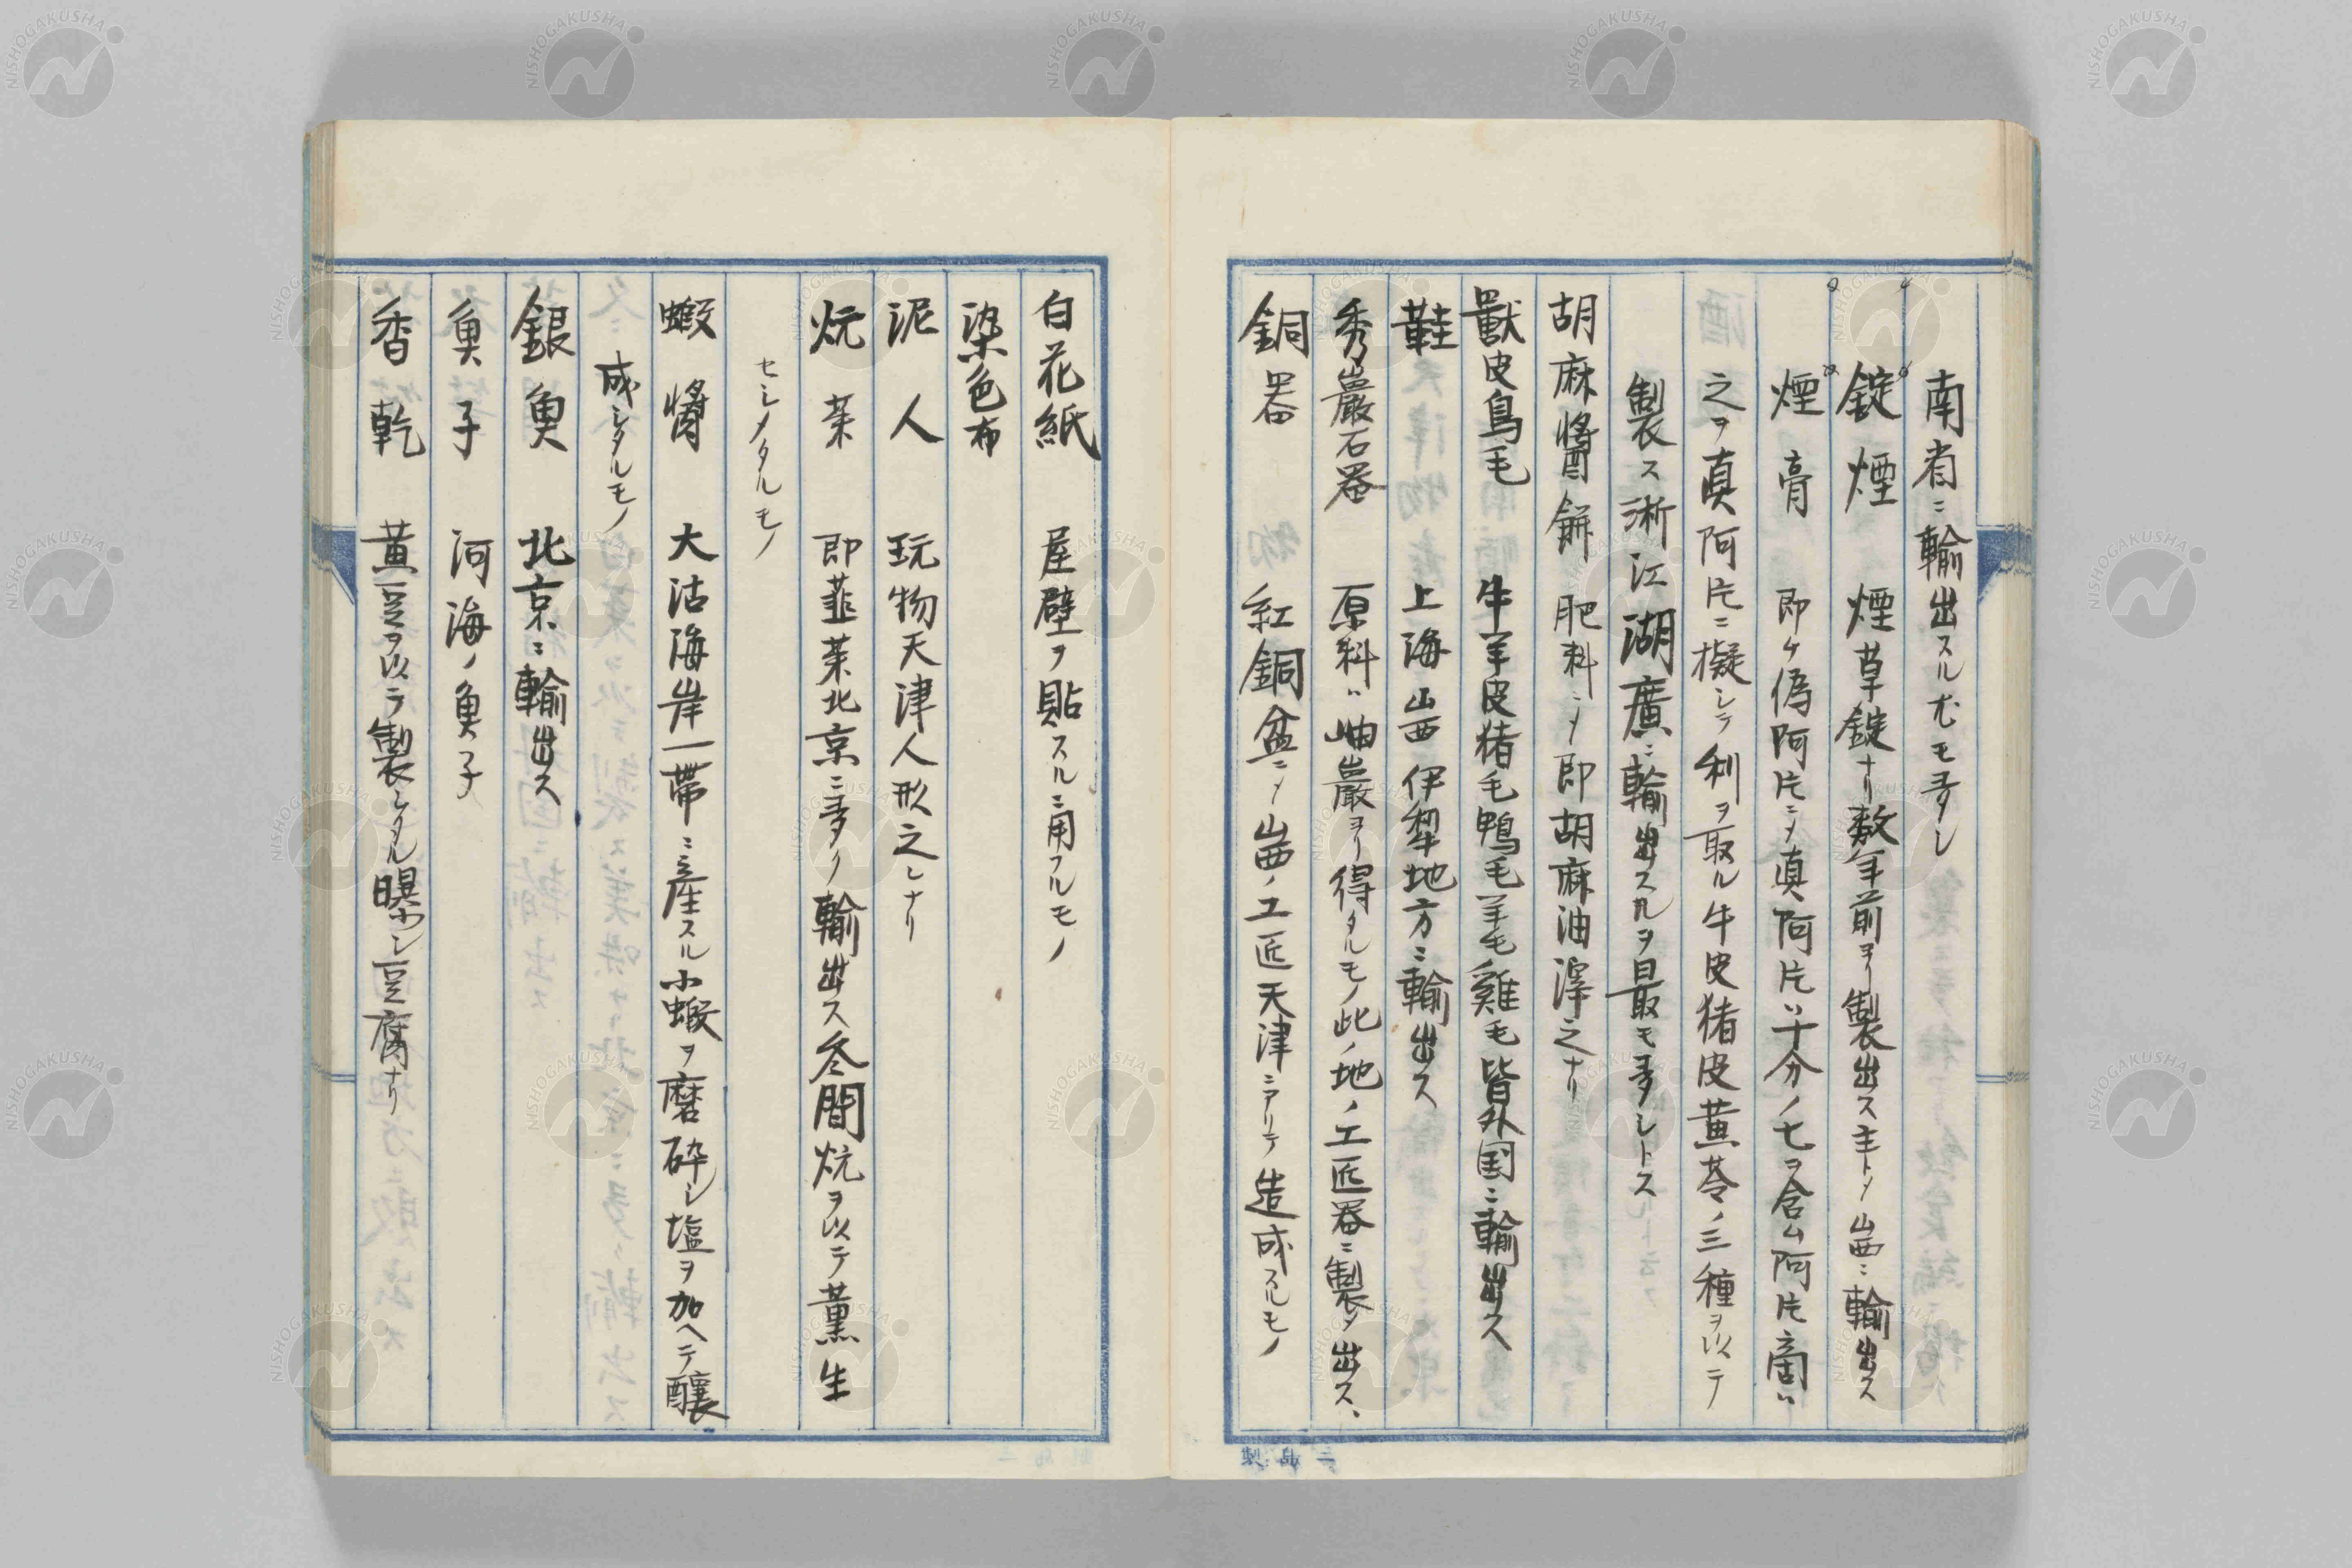 南省ニ輸出スル尤モ多シ
錠煙 煙草錠ナリ数年前ヨリ製出ス主トメ山西ニ輸出ス
煙膏 即ケ偽阿片ニメ真阿片ハ十分ノ七ヲ含ム阿片商ハ
之ヲ真阿片ニ擬シテ利ヲ取ル牛皮猪皮黄苓ノ三種ヲ以テ
製ス淅江湖廣ニ輸出スルヲ最モ多シトス
胡麻醬餅 肥料ニメ即胡麻油滓之ナリ
獸皮鳥毛 牛羊皮猪毛鴨毛羊毛雞毛皆外国ニ輸出ス
鞋 上海山西伊犂地方ニ輸出ス
秀巖石器 原料ハ岫巖ヨリ得タルモノ此ノ地ノ工匠器ニ製メ出ス、
銅器 紅銅盆ニメ山西ノ工匠天津ニアリテ造成スルモノ
白花紙 屋壁ヲ貼スルニ用フルモノ
染色布
泥人 玩物天津人形之レナリ
炕菜 即韮菜北京ニ多ク輸出ス冬間炕ヲ以テ薫生
セシメタルモノ
蝦醬 大沽海岸一帶ニ産スル小蝦ヲ磨碎シ塩ヲ加ヘテ釀
成シタルモノ
銀魚 北京ニ輸出ス
魚子 河海ノ魚子
香乾 黄豆ヲ以テ製シタル曝シ豆腐ナリ
NISHOGAKUSHA